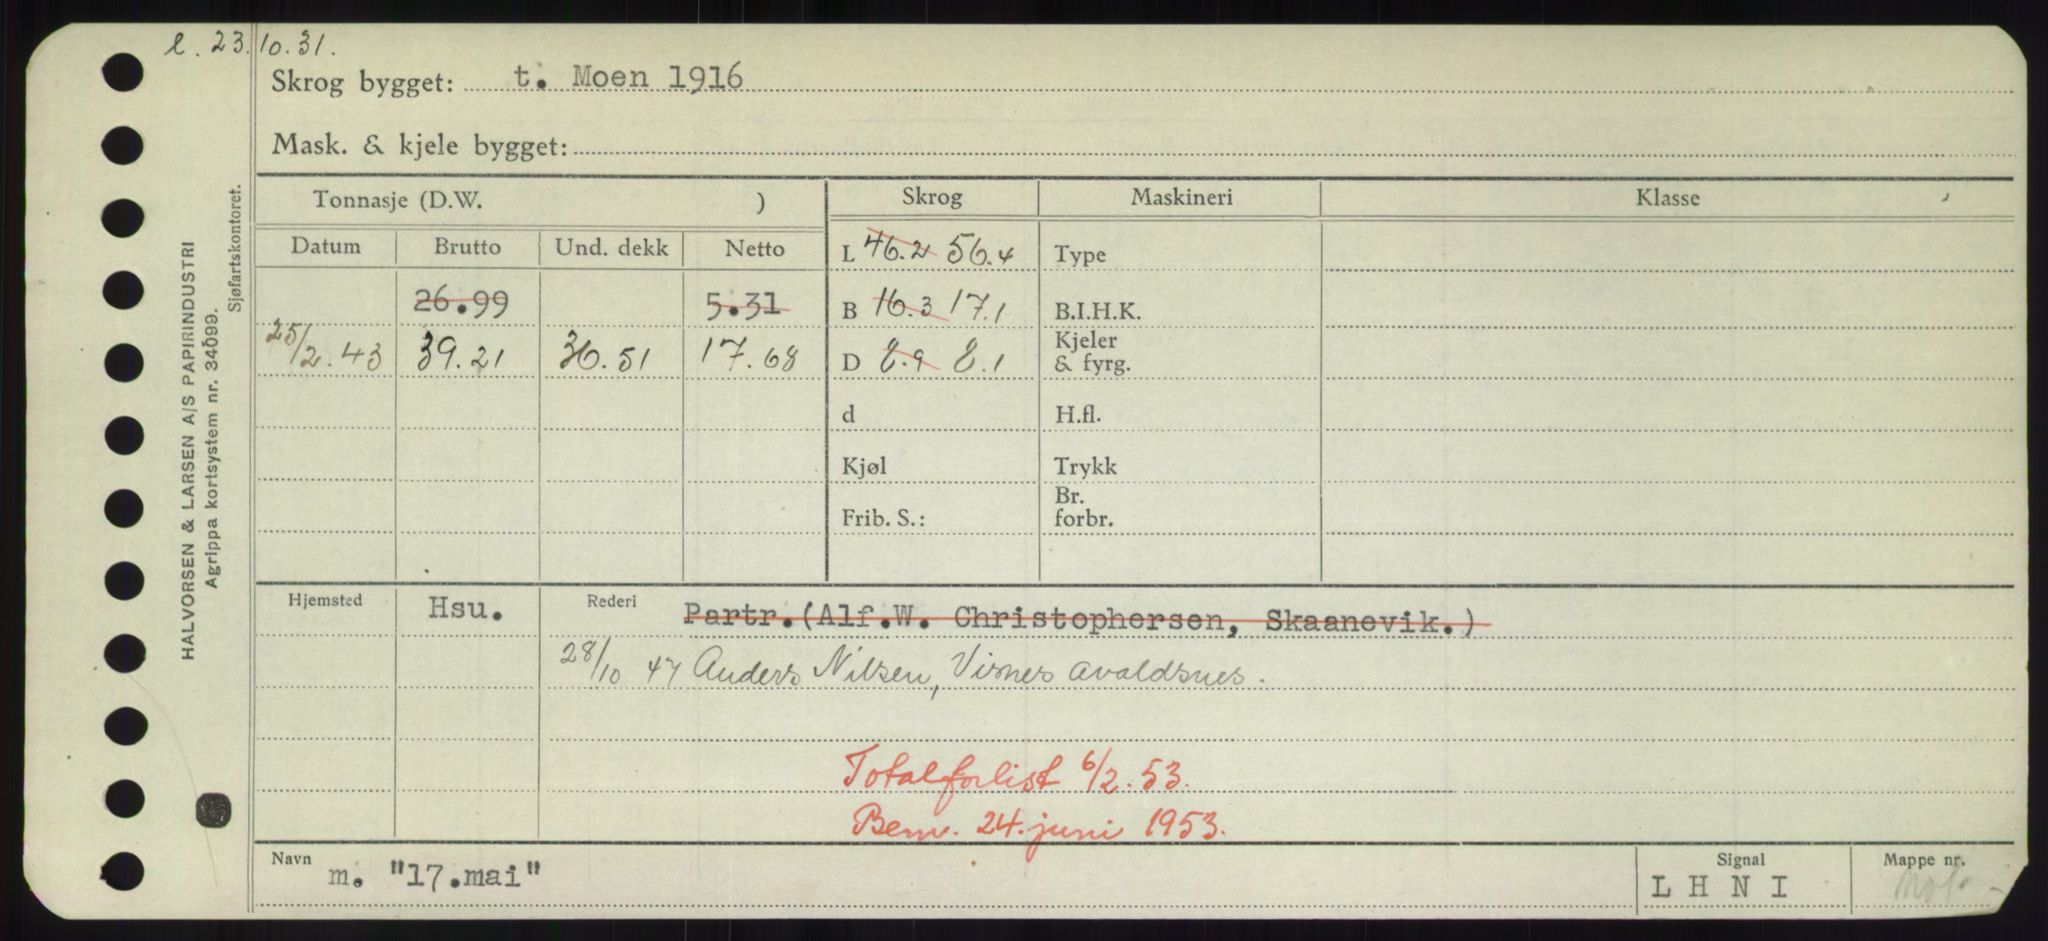 l. 23.10.31.
Skrog bygget: t. Moen 1916
Mask. & kjele bygget:
Tonnasje (D.W. ) Skrog Maskineri Klasse
Datum Brutto Und. dekk Netto L 46.2 56.4 Type
26.99 5.31 B 16.3 17.1 B.I.H.K.
25/2.43 39.21 36.51 17.68 D 8.9 8.1 Kjeler & fyrg.
d H.fl.
Kjøl Trykk
Frib. S.: Br. forbr.
Hjemsted Hsu. Rederi Partr.(Alf.W. Christophersen, Skaanevik.)
28/10 47 Anders Nilsen, Visnes avaldsnes.
Totalforlist 6/2.53.
Bem. 24.juni 1953.
Navn m. "17.mai" Signal LHNI Mappe nr.
HALVORSEN & LARSEN A/S PAPIRINDUSTRI
Agrippa kortsystem nr. 34099.
Sjøfartskontoret.